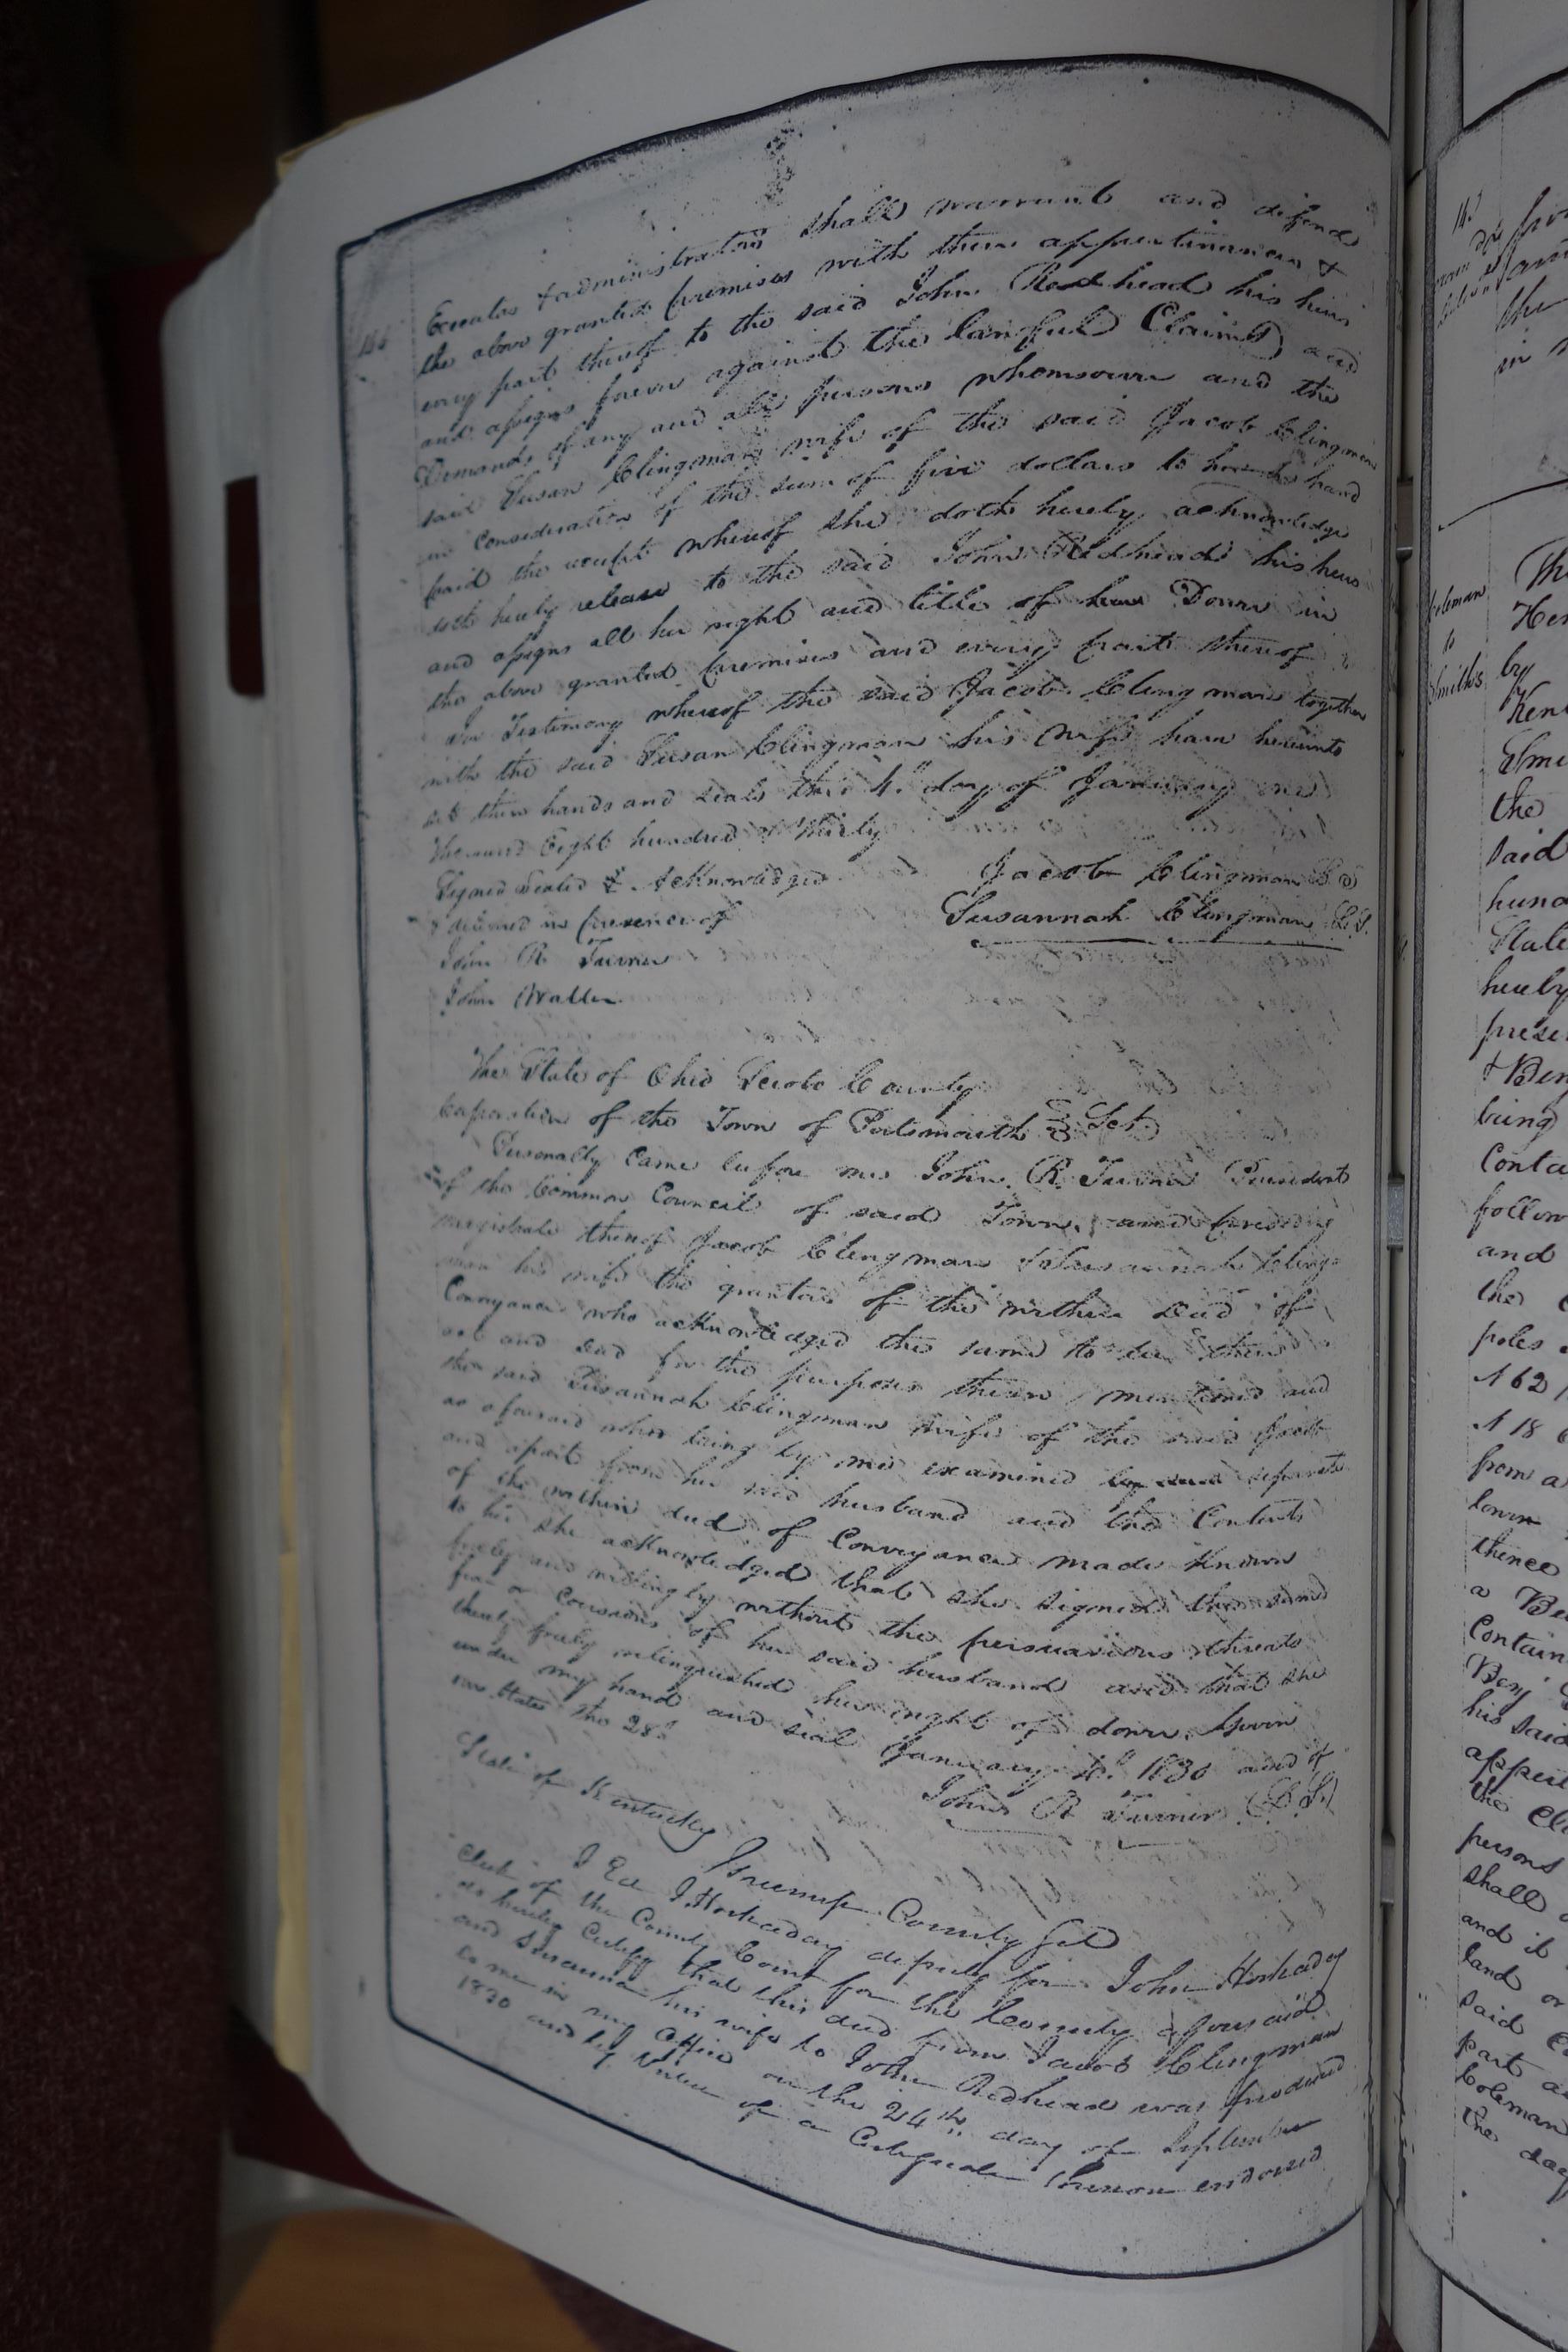 Executors & administrators shall warrant and defend
the above granted premises with there appurtinances &
every part thereof to the said John Redhead his heirs
and assigns forever against the lawful Claims and
Demands of any and all persons whomsoever and the
said Susan Clingman wife of the said Jacob Clingman
in Consideration of the sum of five dollars to her in hand
paid the receipt whereof she doth hereby acknowledge
doth hereby release to the said John Redhead his heirs
and assigns all her right and title of her Dower in
the above granted premises and every part thereof
In Testimony whereof the said Jacob Clingman together
with the said Susan Clingman his wife have hereunto
set their hands and seals this 4th day of January one
thousand Eight hundred & thirty
Signed Sealed & Acknowledged Jacob Clingman L S
& delivered in presence of Susannah Clingman L.S.
John R Turner
John Waller
The State of Ohio Scioto County
Corporation of the Town of Portsmouth Sct
Personally Came before me John R. Turner President
of the Common Council of said Town and presiding
magistrate thereof Jacob Clingman & Susannah Cling-
man his wife the grantors of the within deed of
Conveyance who acknowledged the same to be their
act and deed for the purposes therein mentioned and
the said Susannah Clingman wife of the said Jacob
as aforesaid who being by me examined separate
and apart from her said husband and the Contents
of the within deed of Conveyance made Known
to her she acknowledged that she signed the same
freely and willingly without the persuasions threats
fear or Coersions of her said husband and that she
thereby freely relinquished her right of dower. Given
under my hand and seal January 4th 1830 and of
our States the 28th
John R Turner (L.S.)
State of Kentucky
Greenup County Sct
I Ed J Hockaday deputy for John Hockaday
Clerk of the County Court for the County aforesaid
do hereby Certify that this deed from Jacob Clingman
and Susanna his wife to John Redhead was produced
to me in my office on the 24th day of September
1830 and by virtue of a Certificate thereon endorsed
14.
to
Smiths
by
the
said
State
hereby
being
follow
and
the
poles
N 62
N 18
from a
thence
a
Contain
Benj
his said
the
persons
shall
and it
land or
said
part
Coleman
the day